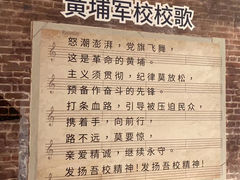 黄埔军校校歌
怒潮澎湃，党旗飞舞，
这是革命的黄埔。
主义须贯彻，纪律莫放松，
预备作奋斗的先锋。
打条血路，引导被压迫民众，
携着手，向前行，
路不远，莫要惊，
亲爱精诚，继续永守。
发扬吾校精神！发扬吾校精神！